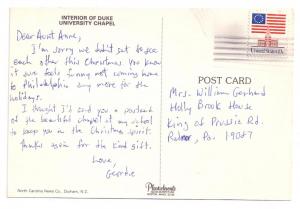 INTERIOR OF DUKE
UNIVERSITY CHAPEL
Dear Aunt Anne,
I'm sorry we didn't get to see
each other this Christmas. You know
it sure feels funny not coming home
to Philadelphia any more for the
holidays.
I thought I'd send you a postcard
of the beautiful chapel at my school
to keep you in the Christmas spirit.
Thanks again for the kind gift.
Love,
George
North Carolina News Co., Durham, N.C.
United States 13c
POST CARD
Mrs. William Gerhard
Holly Brook House
King of Prussia Rd.
Radnor, Pa. 19087